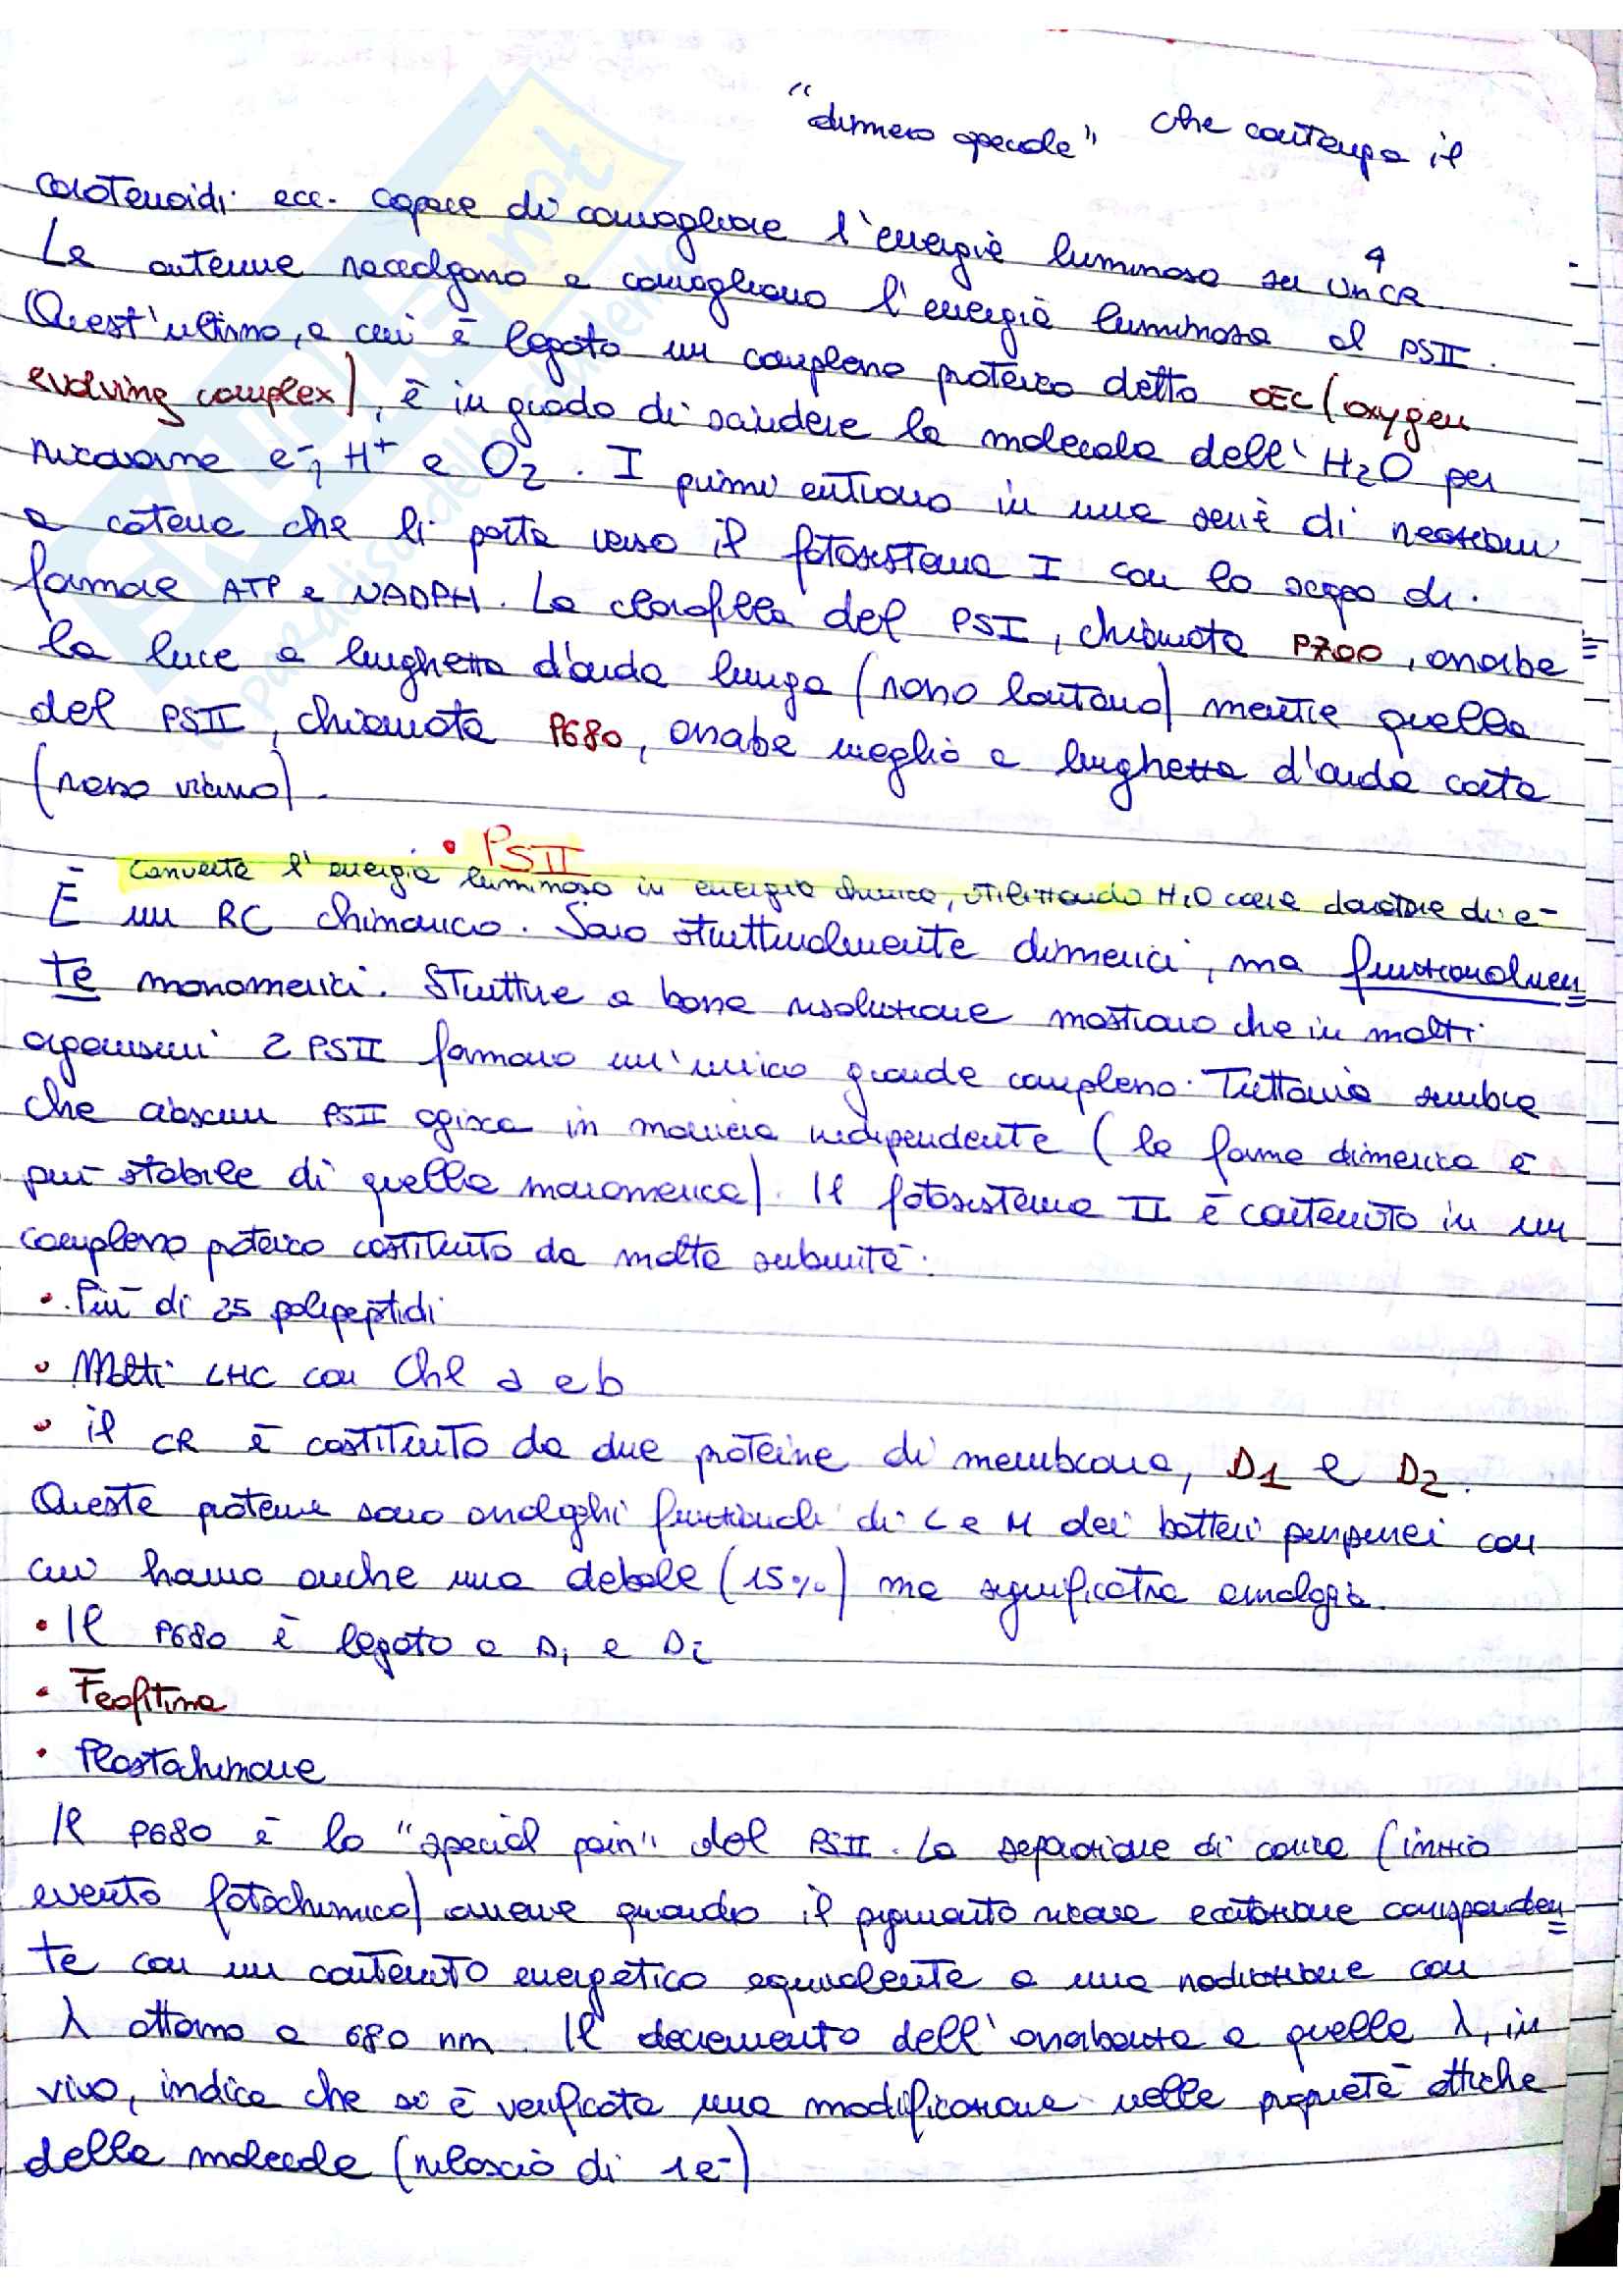 "dimero speciale" che contenga il
carotenoidi ecc. capace di convogliare l'energia luminosa su un CR
Le antenne raccolgono e convogliano l'energia luminosa al PSII.
Quest'ultimo, a cui è legato un complesso proteico detto OEC (oxygen
evolving complex), è in grado di scindere la molecola dell'H2O per
ricavarne e-, H+ e O2. I primi entrano in una serie di reazioni
a catena che li porta verso il fotosistema I con lo scopo di
formare ATP e NADPH. La clorofilla del PSI, chiamata P700, assorbe
la luce a lunghezza d'onda lunga (rosso lontano) mentre quella
del PSII, chiamata P680, assorbe meglio a lunghezza d'onda corta
(rosso vicino).
• PSII
Converte l'energia luminosa in energia chimica, utilizzando H2O come donatore di e-
È un RC chinonico. Sono strutturalmente dimerici, ma funzionalmen
te monomerici. Strutture a bassa risoluzione mostrano che in molti
organismi 2 PSII formano un'unico grande complesso. Tuttavia sembra
che ciascun PSII agisca in maniera indipendente (la forma dimerica è
più stabile di quella monomerica). Il fotosistema II è contenuto in un
complesso proteico costituito da molte subunità:
• Più di 25 polipeptidi
• Molti LHC con Chl a e b
• il CR è costituito da due proteine di membrana, D1 e D2.
Queste proteine sono analoghi funzionali di L e M dei batteri purpurei con
cui hanno anche una debole (15%) ma significativa omologia.
• Il P680 è legato a D1 e D2
• Feofitina
• Plastochinone
Il P680 è lo "special pair" del PSII. La separazione di carica (inizio
evento fotochimico) avviene quando il pigmento riceve eccitazione corrisponden
te con un contenuto energetico equivalente a una radiazione con
λ attorno a 680 nm. Il decremento dell'assorbanza a quella λ, in
vivo, indica che si è verificata una modificazione nelle proprietà ottiche
della molecola (rilascio di 1e-)
SKUOLA.net
il paradiso dello studente